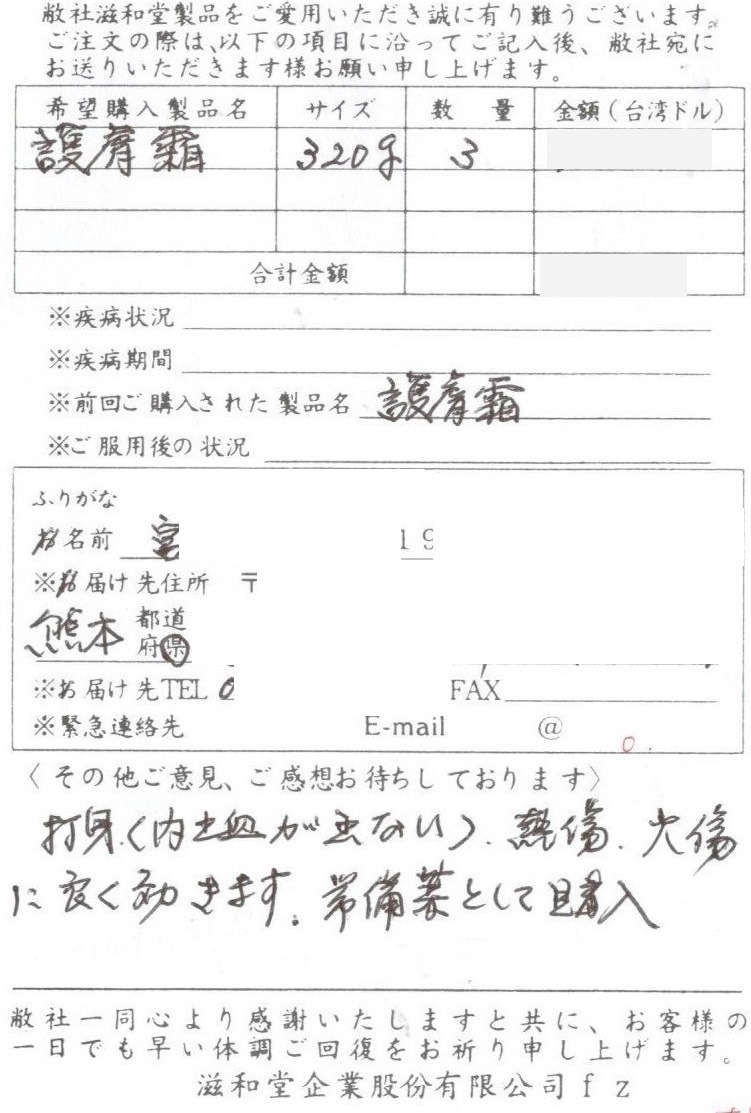 敝社滋和堂製品をご愛用いただき誠に有り難うございます。
ご注文の際は、以下の項目に沿ってご記入後、敝社宛に
お送りいただきます様お願い申し上げます。
希望購入製品名 サイズ 数 量 金額(台湾ドル)
護膚霜 320g 3
合計金額
※疾病状況
※疾病期間
※前回ご購入された製品名 護膚霜
※ご服用後の状況
ふりがな
お名前 宮 19
※お届け先住所 〒
熊本 都道
府県
※お届け先TEL 0 FAX
※緊急連絡先 E-mail @
〈その他ご意見、ご感想お待ちしております〉
打身(内出血が出ない)、熱傷、火傷
に良く効きます。常備薬として購入
敝社一同心より感謝いたしますと共に、お客様の
一日でも早い体調ご回復をお祈り申し上げます。
滋和堂企業股份有限公司fz